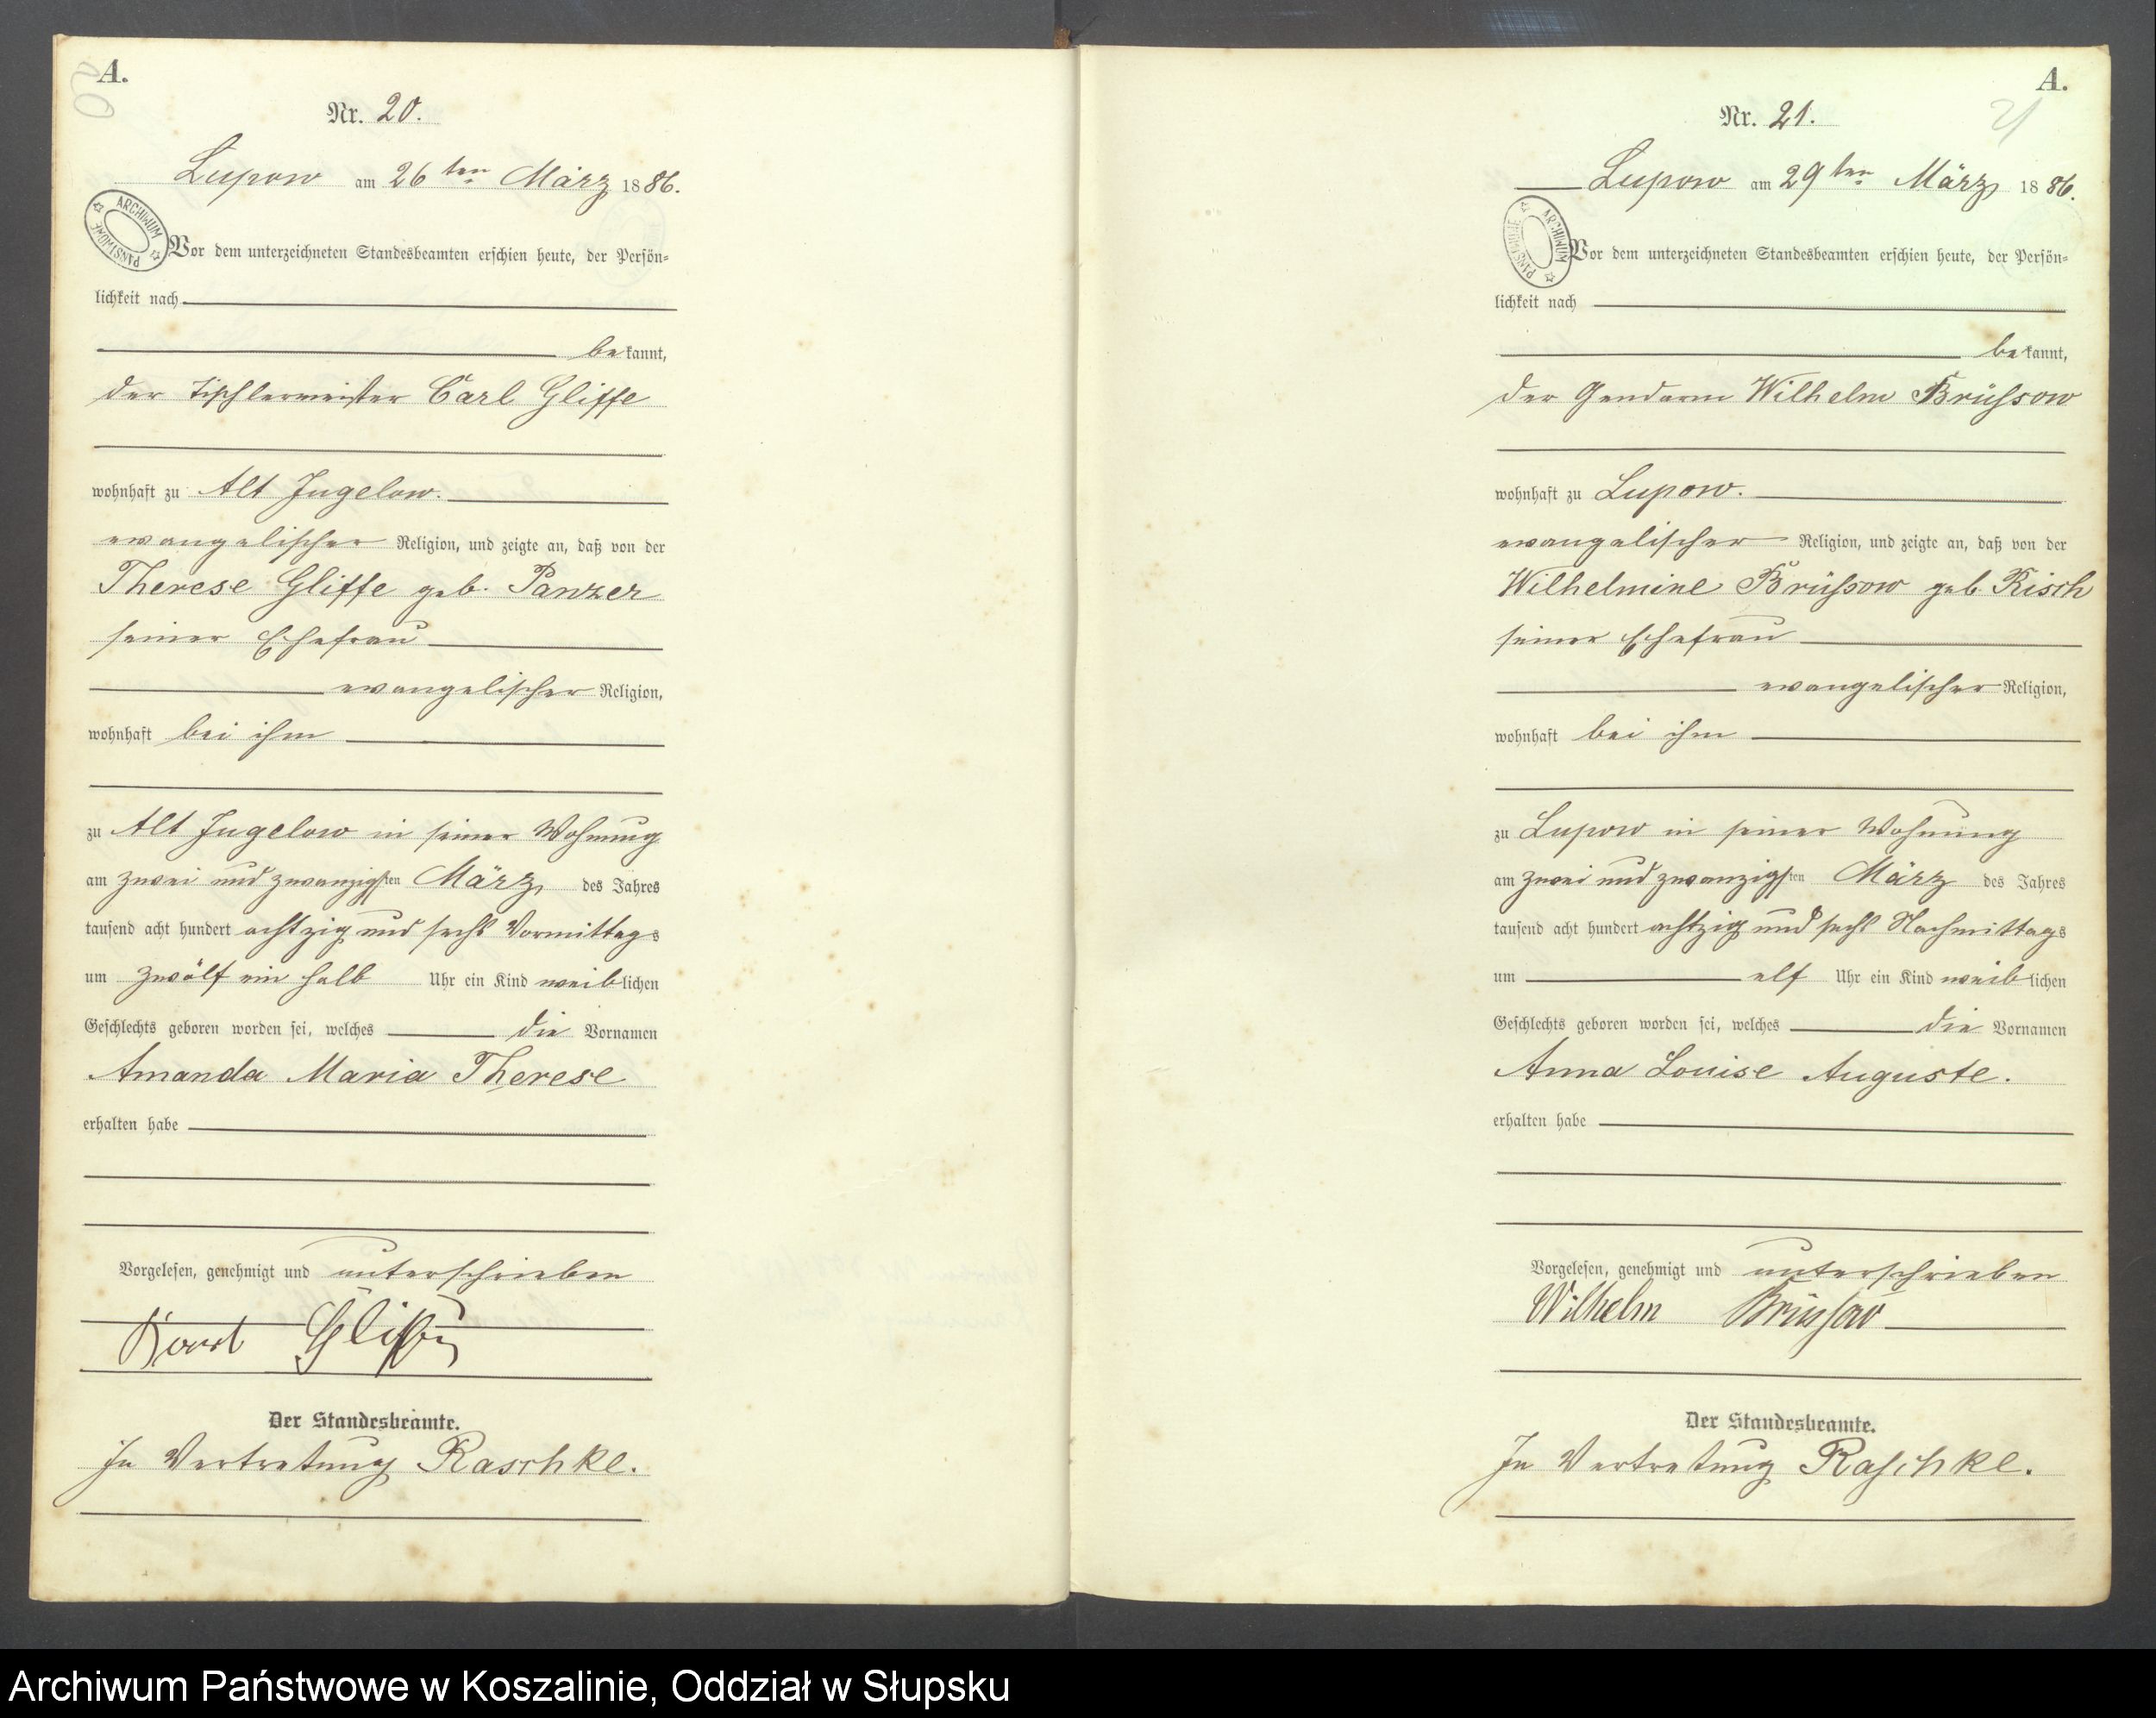 A.
Nr. 20.
Lupow am 26ten März 1886.
ARCHIWUM PAŃSTWOWE
Vor dem unterzeichneten Standesbeamten erschien heute, der Persön-
lichkeit nach
bekannt,
der Tischlermeister Carl Gliffe
wohnhaft zu Alt Jugelow.
evangelischer Religion, und zeigte an, daß von der
Therese Gliffe geb. Panzer
seiner Ehefrau
evangelischer Religion,
wohnhaft bei ihm
zu Alt Jugelow in seiner Wohnung
am zwei und zwanzigsten März des Jahres
tausend acht hundert achtzig und sechs Vormittags
um zwölf ein halb Uhr ein Kind weiblichen
Geschlechts geboren worden sei, welches die Vornamen
Amanda Maria Therese
erhalten habe
Vorgelesen, genehmigt und unterschrieben
Der Standesbeamte.
In Vertretung Raschke.
A.
21
Nr. 21.
Lupow am 29ten März 1886.
ARCHIWUM PAŃSTWOWE
Vor dem unterzeichneten Standesbeamten erschien heute, der Persön-
lichkeit nach
bekannt,
der Gendarm Wilhelm Brüssow
wohnhaft zu Lupow.
evangelischer Religion, und zeigte an, daß von der
Wilhelmine Brüssow geb. Risch
seiner Ehefrau
evangelischer Religion,
wohnhaft bei ihm
zu Lupow in seiner Wohnung
am zwei und zwanzigsten März des Jahres
tausend acht hundert achtzig und sechs Nachmittags
um elf Uhr ein Kind weiblichen
Geschlechts geboren worden sei, welches die Vornamen
Anna Louise Auguste.
erhalten habe
Vorgelesen, genehmigt und unterschrieben
Wilhelm Brüssow
Der Standesbeamte.
In Vertretung Raschke.
Archiwum Państwowe w Koszalinie, Oddział w Słupsku